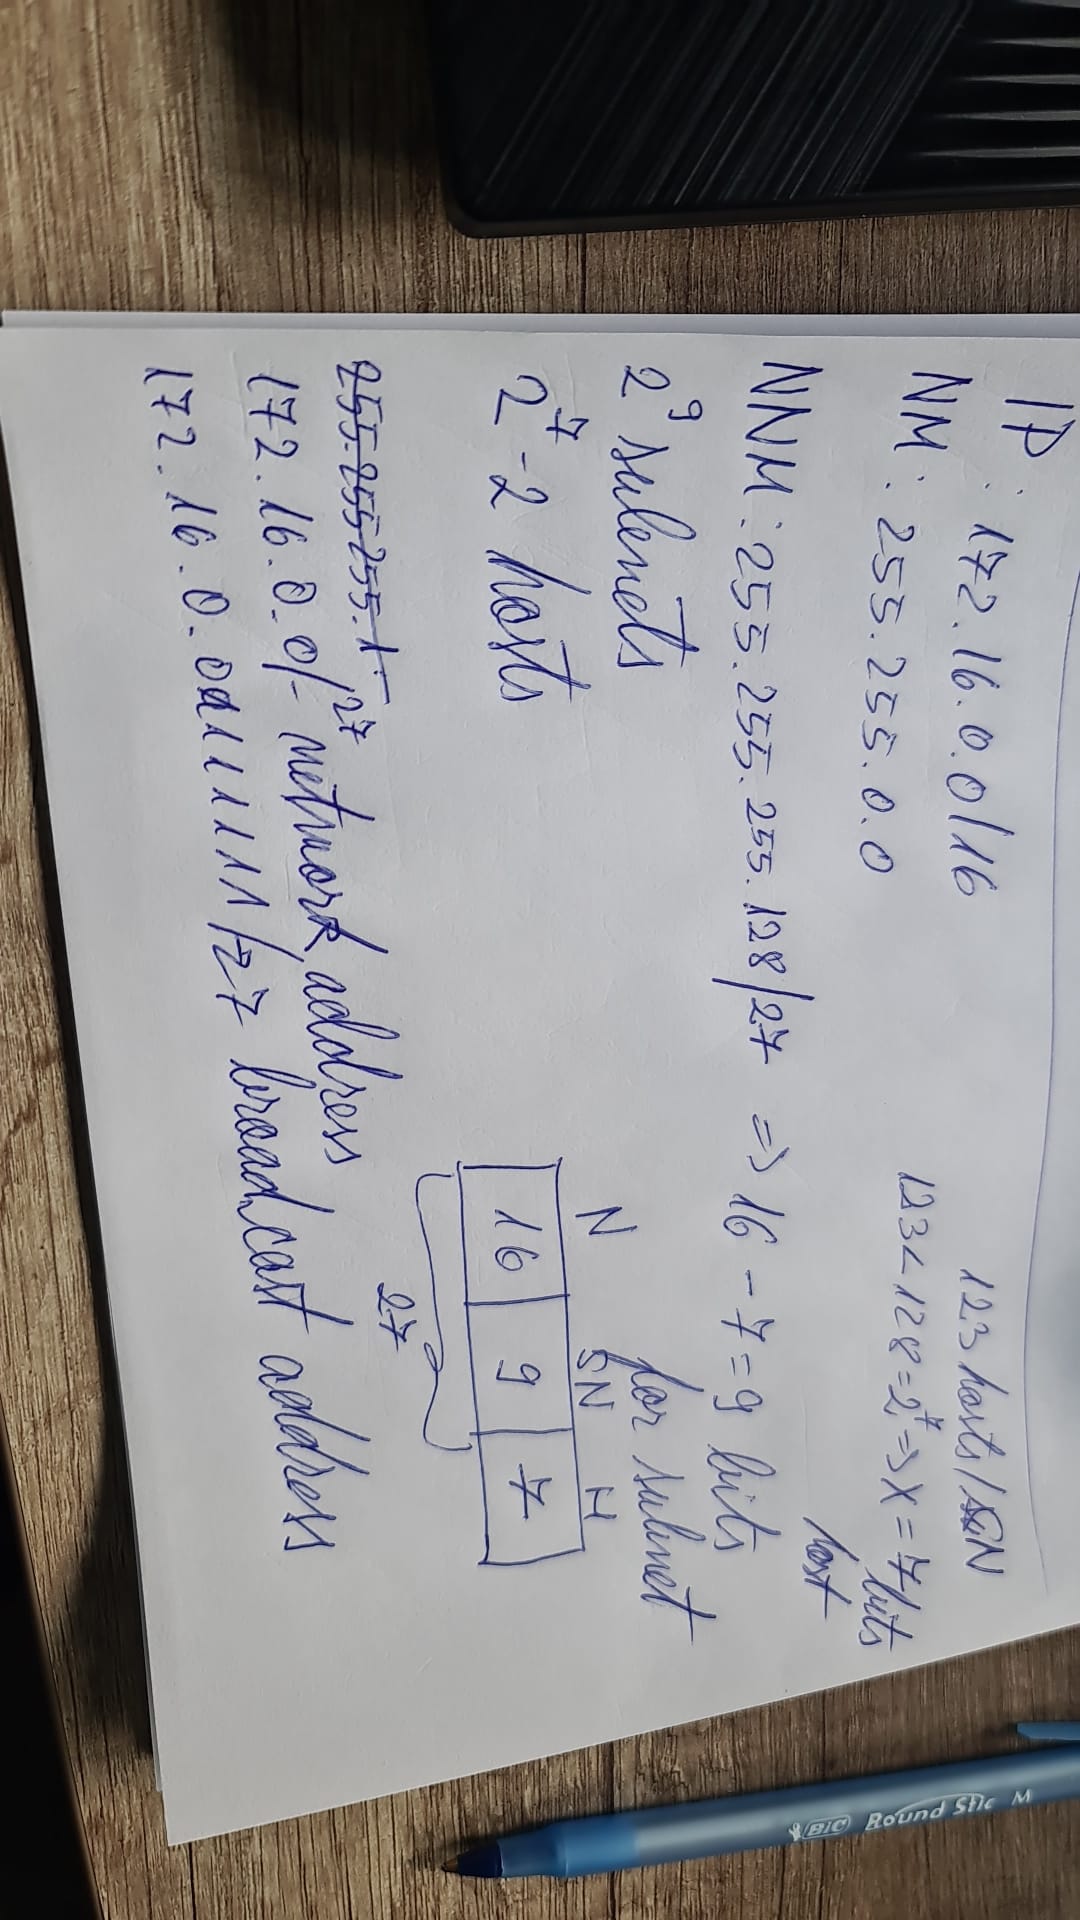 IP: 172.16.0.0/16
NM: 255.255.0.0
123 hosts/SN
123<128=2^7=>X=7 bits
host
NNM: 255.255.255.128/27 => 16-7=9 bits
for subnet
2^9 subnets
2^7-2 hosts
N SN H
16 9 7
27
255.255 255.1.
172.16.0.0/27- network address
172.16.0.01111111/27 broadcast address
BIC Round Stic M